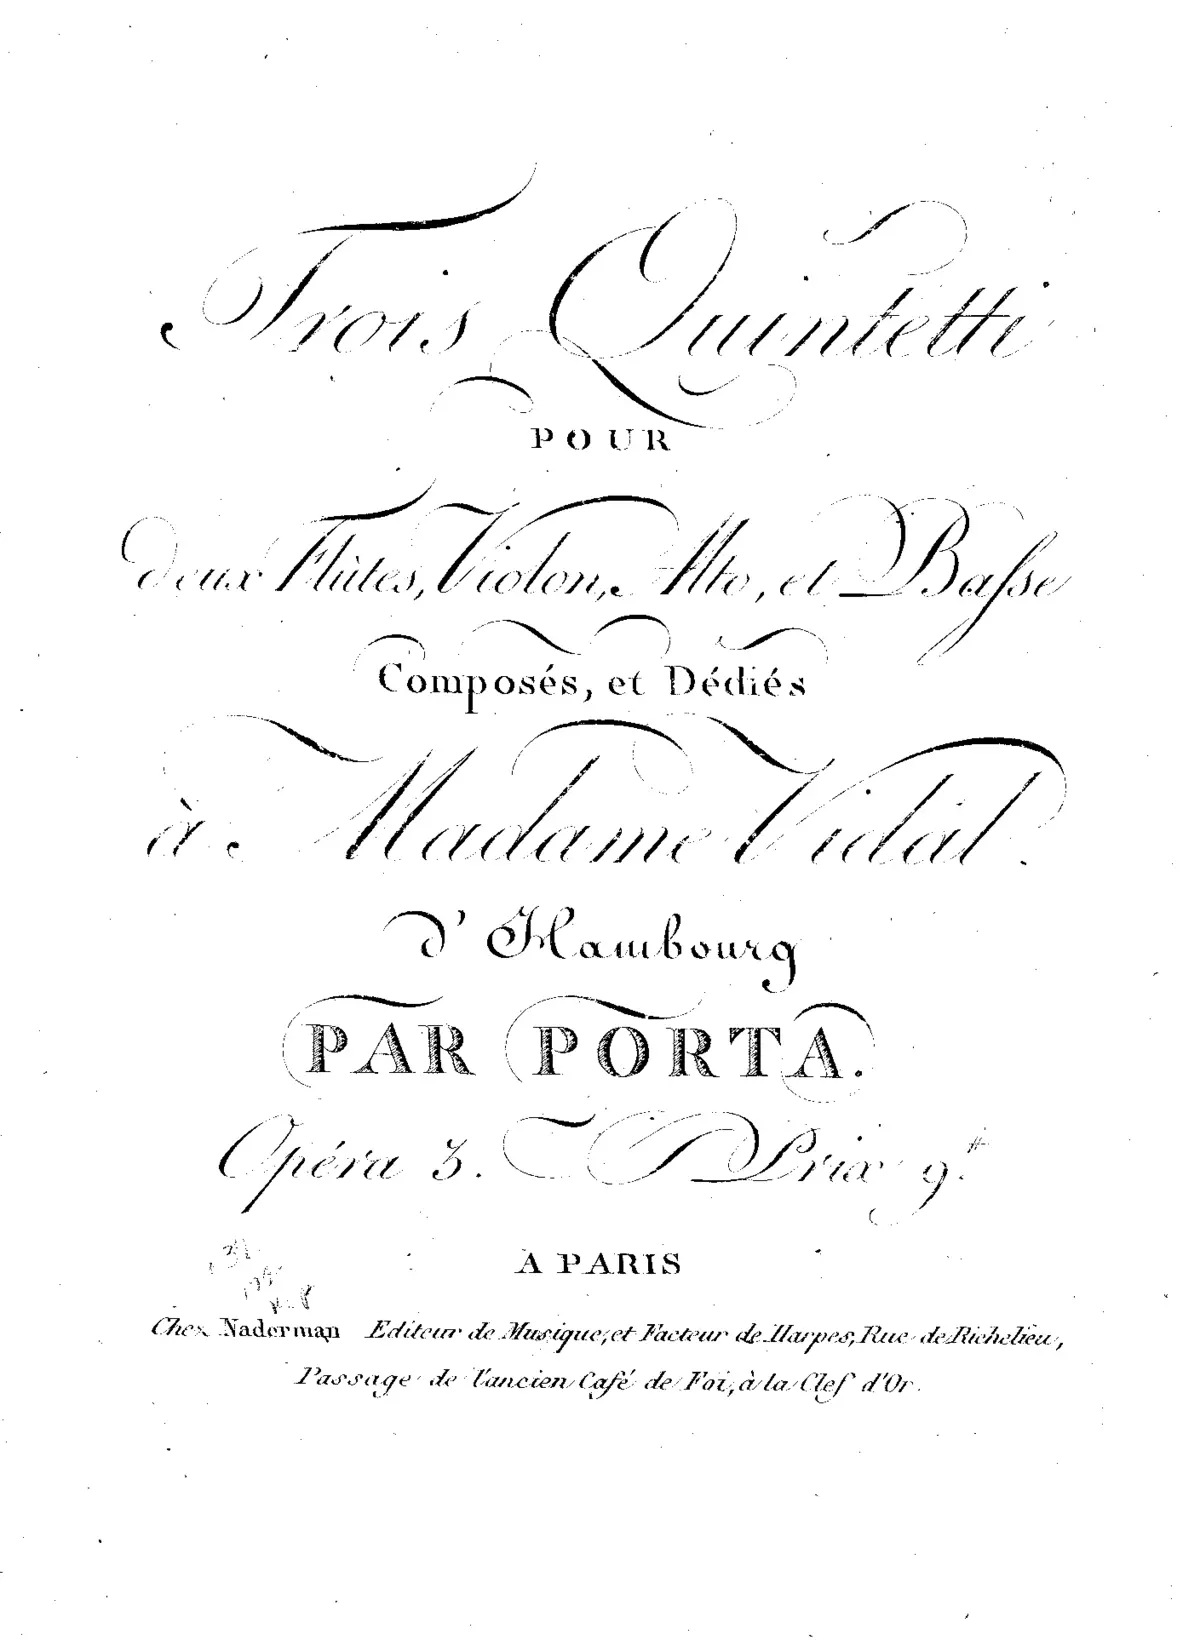 Trois Quintetti
POUR
deux Flùtes, Violon, Alto, et Basse
Composés, et Dédiés
à Madame Vidal.
d'Hambourg
PAR PORTA.
Opéra 3. Prix 9.#
A PARIS
Chez Naderman Editeur de Musique, et Facteur de Harpes, Rue de Richelieu,
Passage de l'ancien Café de Foi, à la Clef d'Or.